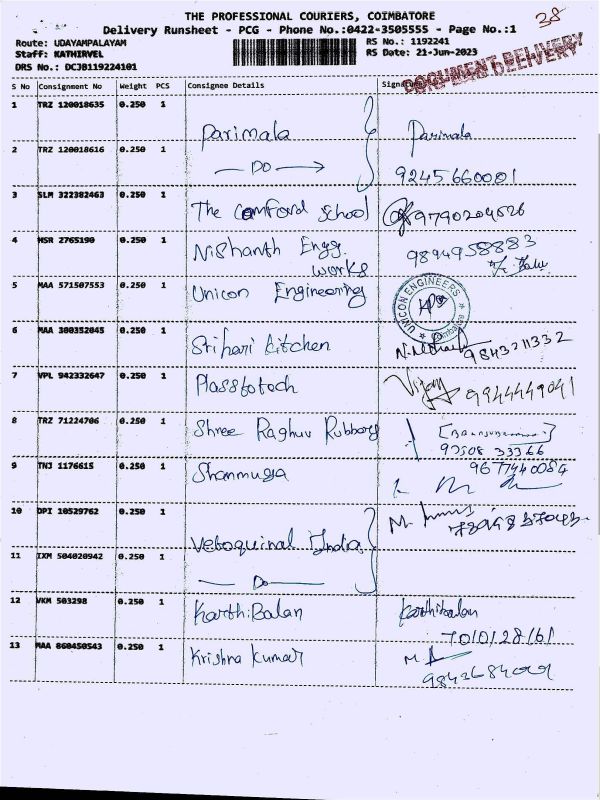 THE PROFESSIONAL COURIERS, COIMBATORE
Delivery Runsheet - PCG - Phone No.:0422-3505555 - Page No.:1
38
Route: UDAYAMPALAYAM
Staff: KATHIRVEL
DRS No.: DCJB119224101
RS No.: 1192241
RS Date: 21-Jun-2023
DOCUMENT DELIVERY
S No Consignment No Weight PCS Consignee Details
1 TRZ 120018635 0.250 1 Parimala Parimala
2 TRZ 120018616 0.250 1 — Do → 9245660001
3 SLM 322382463 0.250 1 The Comford School 9790204526
4 HSR 2765190 0.250 1 Nishanth Engg. works 9894958883
5 MAA 571507553 0.250 1 Unicon Engineering UNICON ENGINEERS
6 MAA 300352045 0.250 1 Srihari kitchen 9843211332
7 VPL 942332647 0.250 1 Plassfotech Vijay 9944449041
8 TRZ 71224706 0.250 1 Shree Raghuv Rubbers 97508 33366
9 TNJ 1176615 0.250 1 Shanmuga 9677440084
10 DPI 10529762 0.250 1 Vetoquinal India
11 IXM 504020942 0.250 1 — Do —
12 VKM 503298 0.250 1 KarthiBalan Karthibalan
7010128161
13 MAA 860450543 0.250 1 Krishna kumar